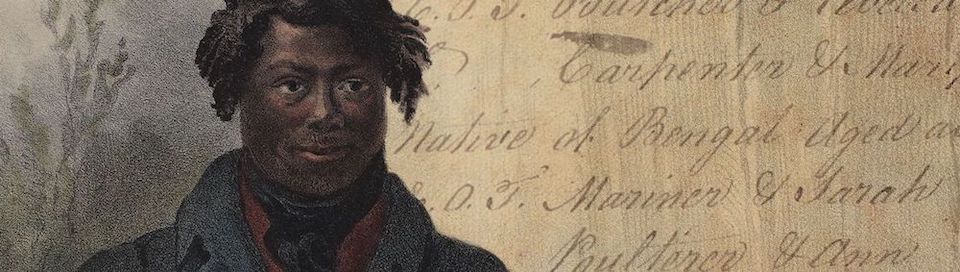 Carpenter & Mary
Native of Bengal Aged
C. O. T. Mariner & Sarah
Poulterer & Ann